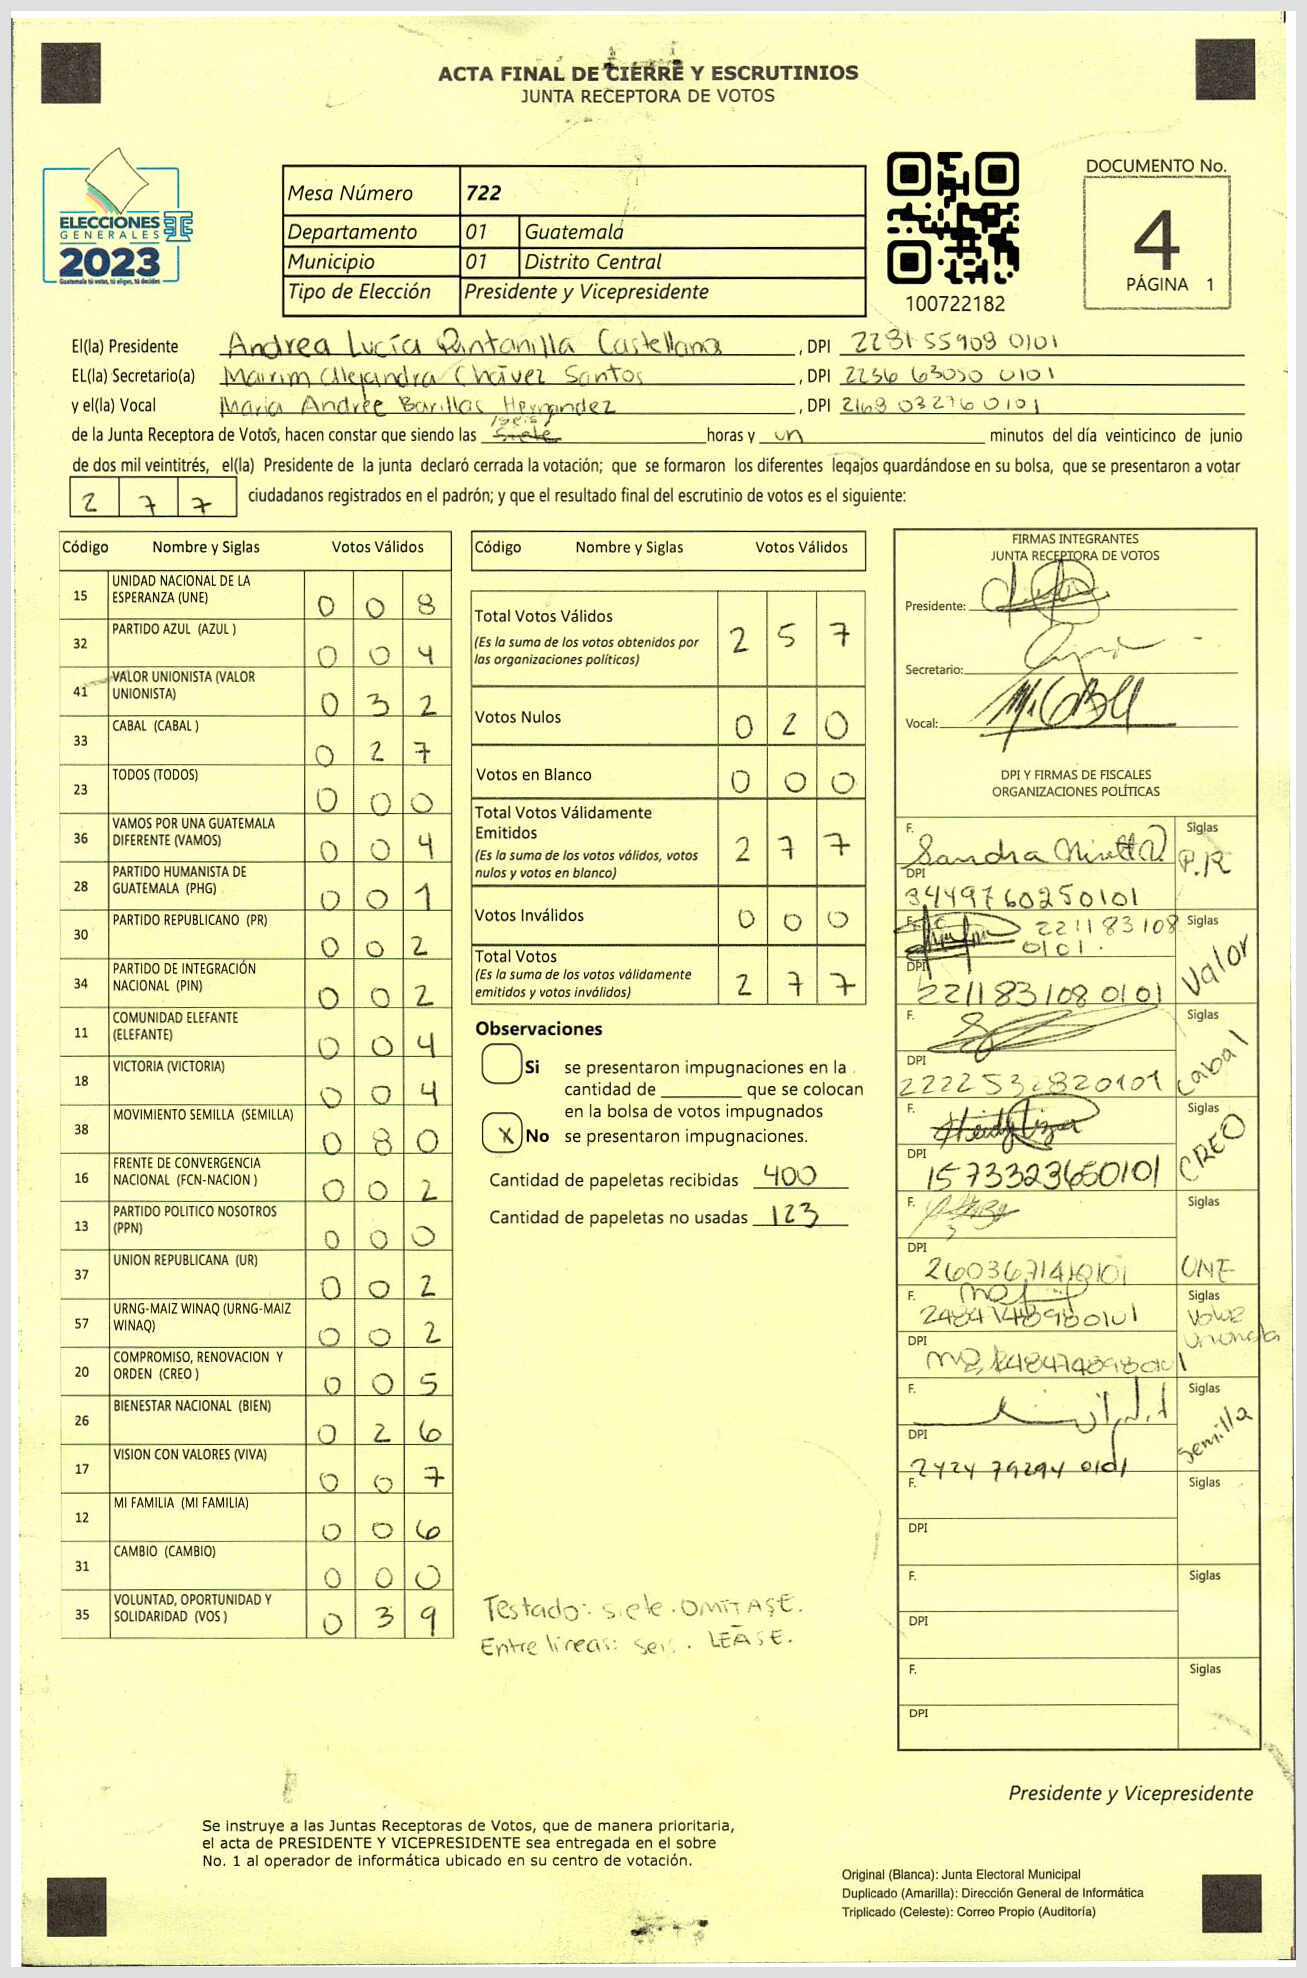 ACTA FINAL DE CIERRE Y ESCRUTINIOS
JUNTA RECEPTORA DE VOTOS
ELECCIONES
GENERALES
2023
Guatemala tú votas, tú eliges, tú decides
Mesa Número 722
Departamento 01 Guatemala
Municipio 01 Distrito Central
Tipo de Elección Presidente y Vicepresidente
100722182
DOCUMENTO No.
4
PÁGINA 1
El(la) Presidente Andrea Lucía Quintanilla Castellanos, DPI 2281 55908 0101
EL(la) Secretario(a) Mairim Alejandra Chávez Santos, DPI 2236 63050 0101
y el(la) Vocal María Andrée Barillas Hernández, DPI 2168 03276 0101
seis
de la Junta Receptora de Votos, hacen constar que siendo las siete horas y un minutos del día veinticinco de junio
de dos mil veintitrés, el(la) Presidente de la junta declaró cerrada la votación; que se formaron los diferentes legajos guardándose en su bolsa, que se presentaron a votar
2 7 7 ciudadanos registrados en el padrón; y que el resultado final del escrutinio de votos es el siguiente:
Código Nombre y Siglas Votos Válidos
15 UNIDAD NACIONAL DE LA ESPERANZA (UNE) 0 0 8
32 PARTIDO AZUL (AZUL ) 0 0 4
41 VALOR UNIONISTA (VALOR UNIONISTA) 0 3 2
33 CABAL (CABAL ) 0 2 7
23 TODOS (TODOS) 0 0 0
36 VAMOS POR UNA GUATEMALA DIFERENTE (VAMOS) 0 0 4
28 PARTIDO HUMANISTA DE GUATEMALA (PHG) 0 0 1
30 PARTIDO REPUBLICANO (PR) 0 0 2
34 PARTIDO DE INTEGRACIÓN NACIONAL (PIN) 0 0 2
11 COMUNIDAD ELEFANTE (ELEFANTE) 0 0 4
18 VICTORIA (VICTORIA) 0 0 4
38 MOVIMIENTO SEMILLA (SEMILLA) 0 8 0
16 FRENTE DE CONVERGENCIA NACIONAL (FCN-NACION ) 0 0 2
13 PARTIDO POLITICO NOSOTROS (PPN) 0 0 0
37 UNION REPUBLICANA (UR) 0 0 2
57 URNG-MAIZ WINAQ (URNG-MAIZ WINAQ) 0 0 2
20 COMPROMISO, RENOVACION Y ORDEN (CREO ) 0 0 5
26 BIENESTAR NACIONAL (BIEN) 0 2 6
17 VISION CON VALORES (VIVA) 0 0 7
12 MI FAMILIA (MI FAMILIA) 0 0 6
31 CAMBIO (CAMBIO) 0 0 0
35 VOLUNTAD, OPORTUNIDAD Y SOLIDARIDAD (VOS ) 0 3 9
Código Nombre y Siglas Votos Válidos
Total Votos Válidos 2 5 7
(Es la suma de los votos obtenidos por
las organizaciones políticas)
Votos Nulos 0 2 0
Votos en Blanco 0 0 0
Total Votos Válidamente
Emitidos 2 7 7
(Es la suma de los votos válidos, votos
nulos y votos en blanco)
Votos Inválidos 0 0 0
Total Votos 2 7 7
(Es la suma de los votos válidamente
emitidos y votos inválidos)
Observaciones
Si se presentaron impugnaciones en la
cantidad de ________ que se colocan
en la bolsa de votos impugnados
X No se presentaron impugnaciones.
Cantidad de papeletas recibidas 400
Cantidad de papeletas no usadas 123
Testado: siete. OMITASE.
Entre líneas: seis. LEASE.
FIRMAS INTEGRANTES
JUNTA RECEPTORA DE VOTOS
Presidente:
Secretario:
Vocal:
DPI Y FIRMAS DE FISCALES
ORGANIZACIONES POLÍTICAS
F. Sandra Siglas P.R
DPI 3449760250101
F. 221183108 0101. Siglas Valor
DPI 221183108 0101
F. Siglas Cabal
DPI 2222532820101
F. Siglas CREO
DPI 1573323650101
F. Siglas UNE
DPI 2603671410101
F. 2484748980101 Siglas Valor Unionista
DPI 2484748980101
F. Siglas Semilla
DPI 2424 79294 0101
F. Siglas
DPI
F. Siglas
DPI
F. Siglas
DPI
Presidente y Vicepresidente
Se instruye a las Juntas Receptoras de Votos, que de manera prioritaria,
el acta de PRESIDENTE Y VICEPRESIDENTE sea entregada en el sobre
No. 1 al operador de informática ubicado en su centro de votación.
Original (Blanca): Junta Electoral Municipal
Duplicado (Amarilla): Dirección General de Informática
Triplicado (Celeste): Correo Propio (Auditoría)